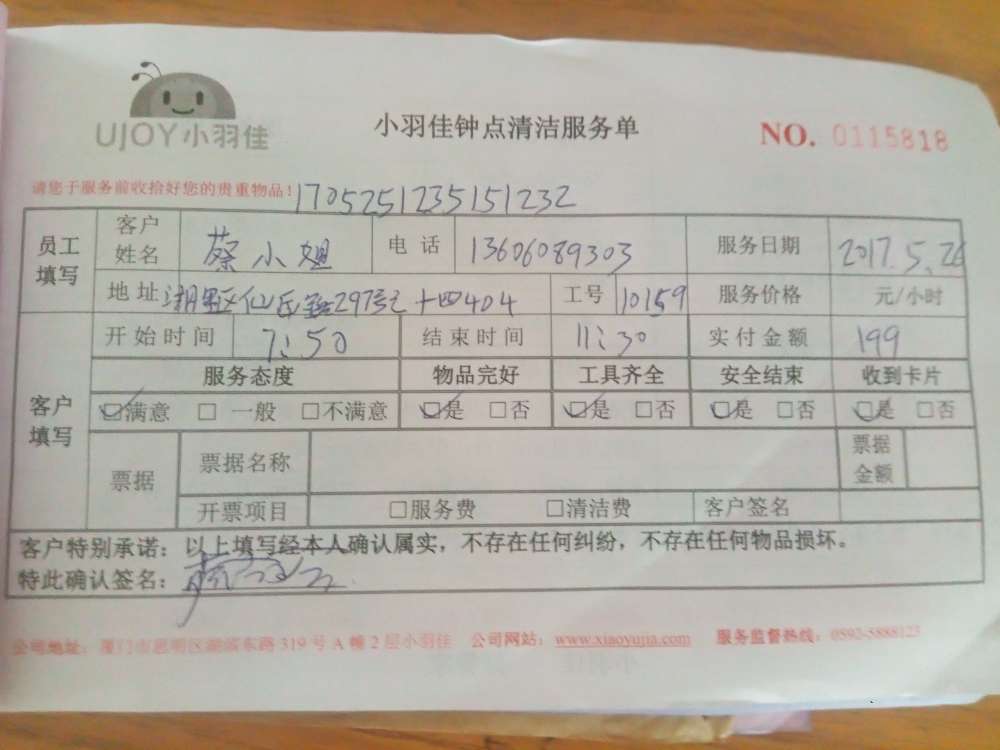 UJOY小羽佳
小羽佳钟点清洁服务单
NO. 0115818
请您于服务前收拾好您的贵重物品!
1705251235151232
员工填写 客户姓名 蔡小姐 电话 13606089303 服务日期 2017.5.26
地址 湖里区仙岳路297号之十四404 工号 10159 服务价格 元/小时
客户填写 开始时间 7:50 结束时间 11:30 实付金额 199
服务态度 物品完好 工具齐全 安全结束 收到卡片
☑满意 □一般 □不满意 ☑是 □否 ☑是 □否 ☑是 □否 ☑是 □否
票据 票据名称 票据金额
开票项目 □服务费 □清洁费 客户签名
客户特别承诺：以上填写经本人确认属实，不存在任何纠纷，不存在任何物品损坏。
特此确认签名：
公司地址：厦门市思明区湖滨东路319号A幢2层小羽佳 公司网站：www.xiaoyujia.com 服务监督热线：0592-5888123